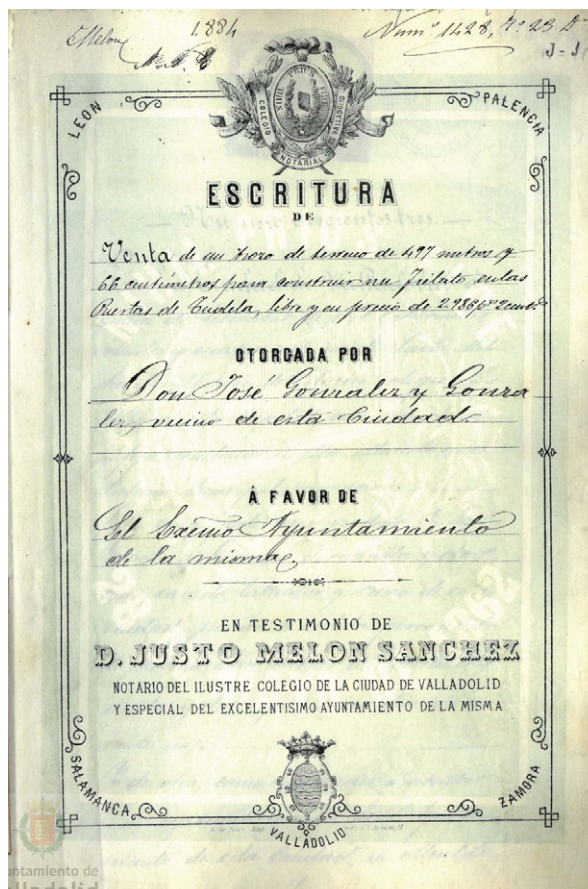 Melon
1.884
Num.º 1428,
LEON
PALENCIA
NIHIL PRIUS FIDE
COLEGIO NOTARIAL VALLADOLID
ESCRITURA
DE
Venta de un trozo de terreno de 497 metros y
66 centimetros para construir un Fielato, en las
Puertas de Tudela, libre y en precio de
OTORGADA POR
Don José Gonzalez y Gonza
lez, vecino de esta Ciudad.
Á FAVOR DE
El Excmo Ayuntamiento
de la misma.
EN TESTIMONIO DE
D. JUSTO MELON SANCHEZ
NOTARIO DEL ILUSTRE COLEGIO DE LA CIUDAD DE VALLADOLID
Y ESPECIAL DEL EXCELENTISIMO AYUNTAMIENTO DE LA MISMA
SALAMANCA
VALLADOLID
ZAMORA
untamiento de
lladolid